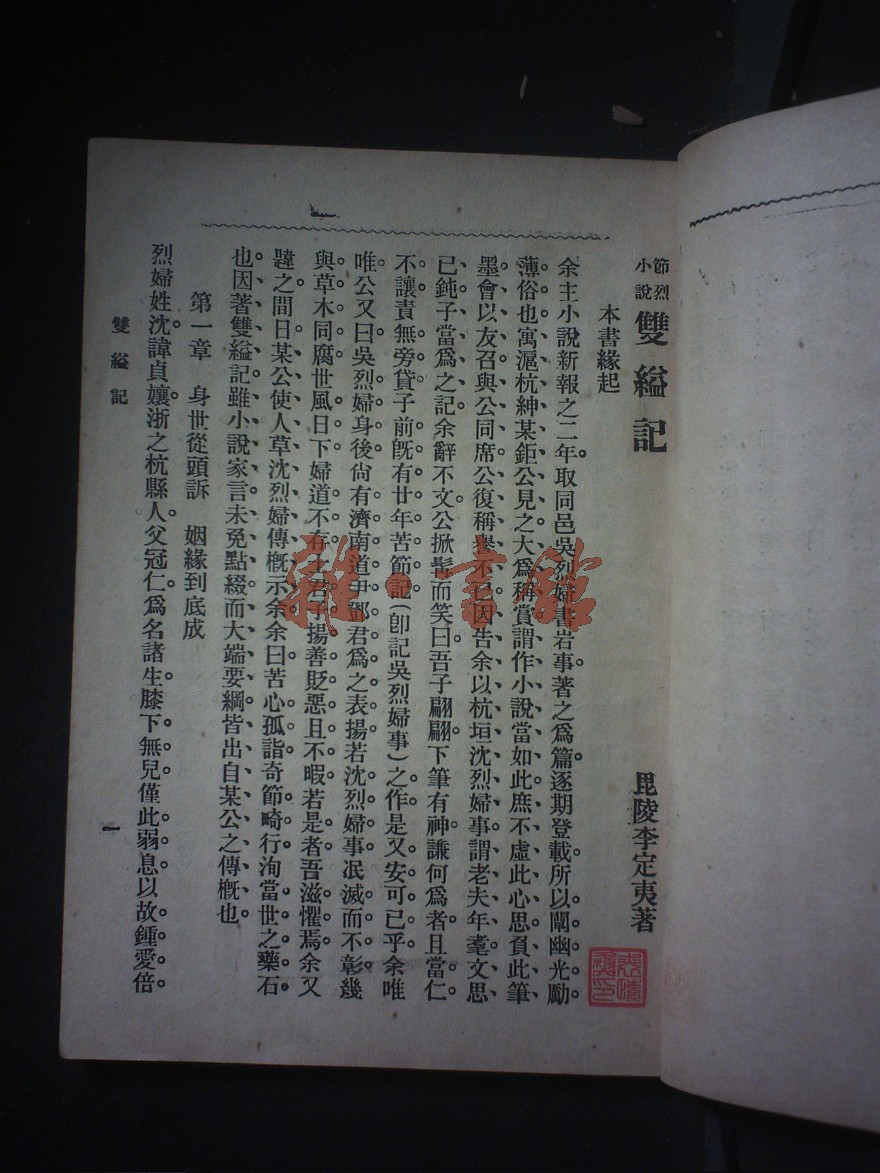 節烈小說 雙縊記 毘陵李定夷著
本書緣起
余主小說新報之二年。取同邑吳烈婦書岩事著之爲篇。逐期登載。所以闡幽光勵
薄俗也。寓滬杭紳某鉅公見之大爲稱賞。謂作小說當如此。庶不虛此心思負此筆
墨。會以友召與公同席。公復稱譽不已。因告余以杭垣沈烈婦事。謂老夫年耄文思
已鈍。子當爲之記。余辭不文。公掀髯而笑曰。吾子翩翩。下筆有神。謙何爲者。且當仁
不讓。責無旁貸。子前旣有廿年苦節記(卽記吳烈婦事)之作。是又安可已乎。余唯
唯。公又曰。吳烈婦身後尙有濟南道尹鄧君爲之表揚。若沈烈婦事。泯滅而不彰。幾
與草木同腐。世風日下。婦道不存。士君子揚善貶惡。且不暇。若是者。吾滋懼焉。余又
韙之。間日某公使人草沈烈婦傳槪示余。余曰。苦心孤詣。奇節畸行。洵當世之藥石
也。因著雙縊記。雖小說家言。未免點綴。而大端要綱皆出自某公之傳槪也。
第一章 身世從頭訴 姻緣到底成
烈婦姓沈。諱貞孃。浙之杭縣人。父冠仁。爲名諸生。膝下無兒。僅此弱息。以故鍾愛倍
雙縊記
一
雜·書館